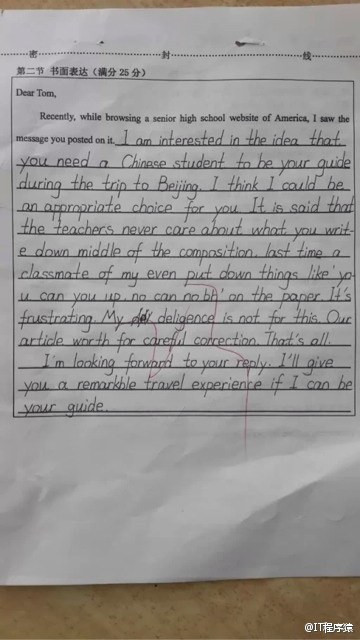 密 封 线
第二节 书面表达（满分 25 分）
Dear Tom,
Recently, while browsing a senior high school website of America, I saw the
message you posted on it. I am interested in the idea that
you need a Chinese student to be your guide
during the trip to Beijing. I think I could be
an appropriate choice for you. It is said that
the teachers never care about what you writ-
e down middle of the composition. last time a
classmate of my even put down things like 'yo
u can you up, no can no bb' on the paper. It's
frustrating. My deligence is not for this. Our
article worth for careful correction. That's all.
I'm looking forward to your reply. I'll give
you a remarkble travel experience if I can be
your guide.
@IT程序猿